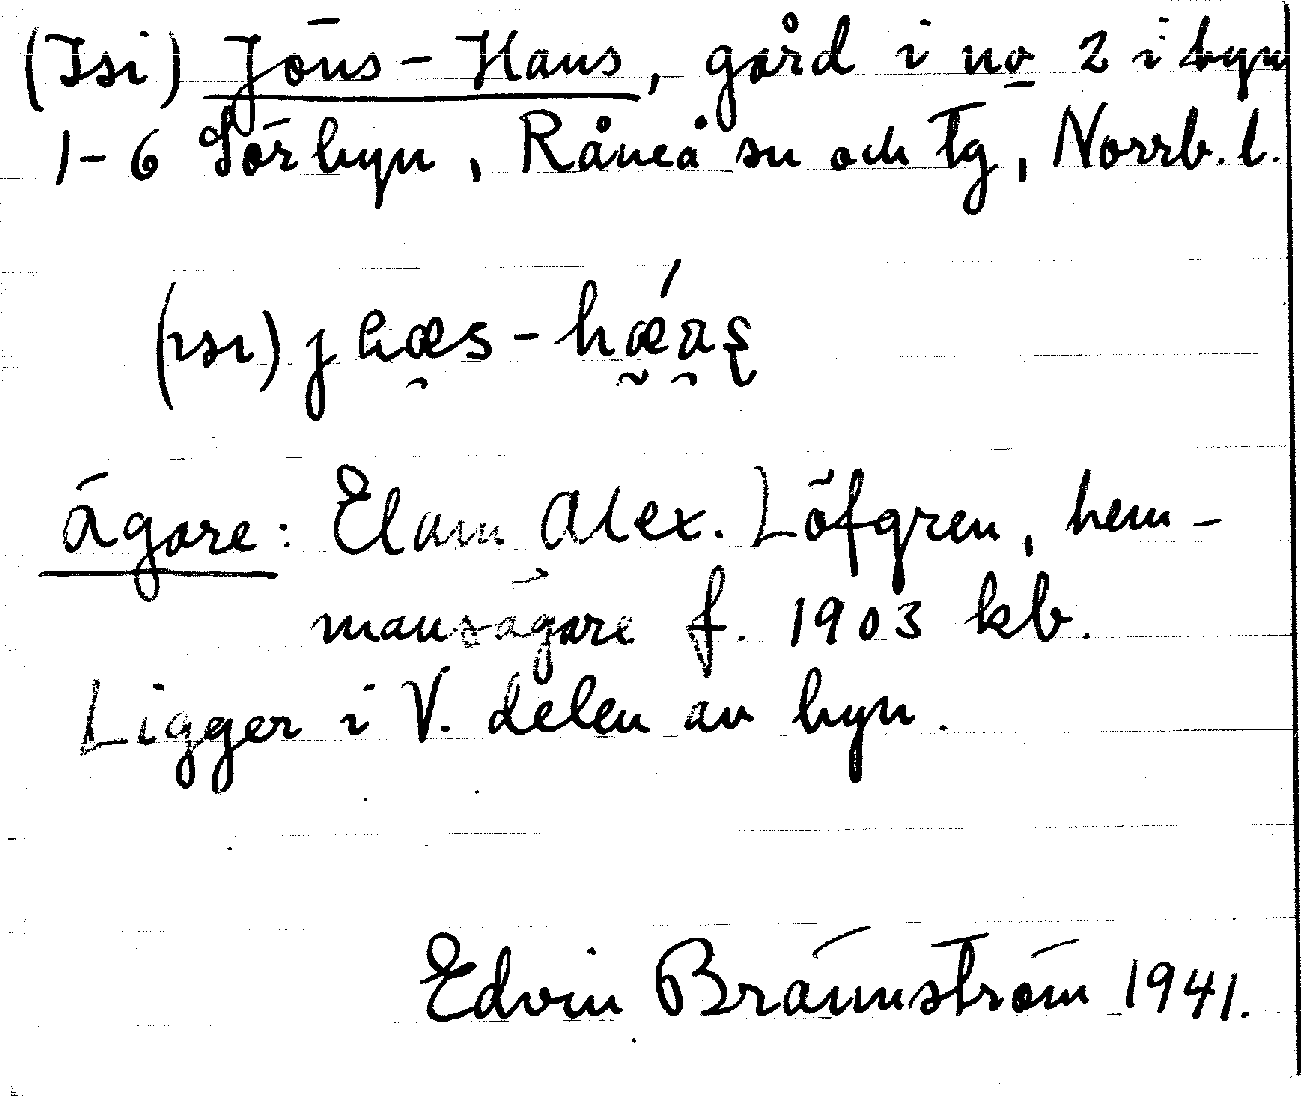 (Isi) Jöns-Hans, gård i no 2 i byn
1-6 Sörbyn, Råneå sn och tg, Norrb. l.
(ısı)
Ägare: Elam Alex. Löfgren, hem-
mansägare f. 1903 kb.
Ligger i V. delen av byn.
Edvin Brännström 1941.